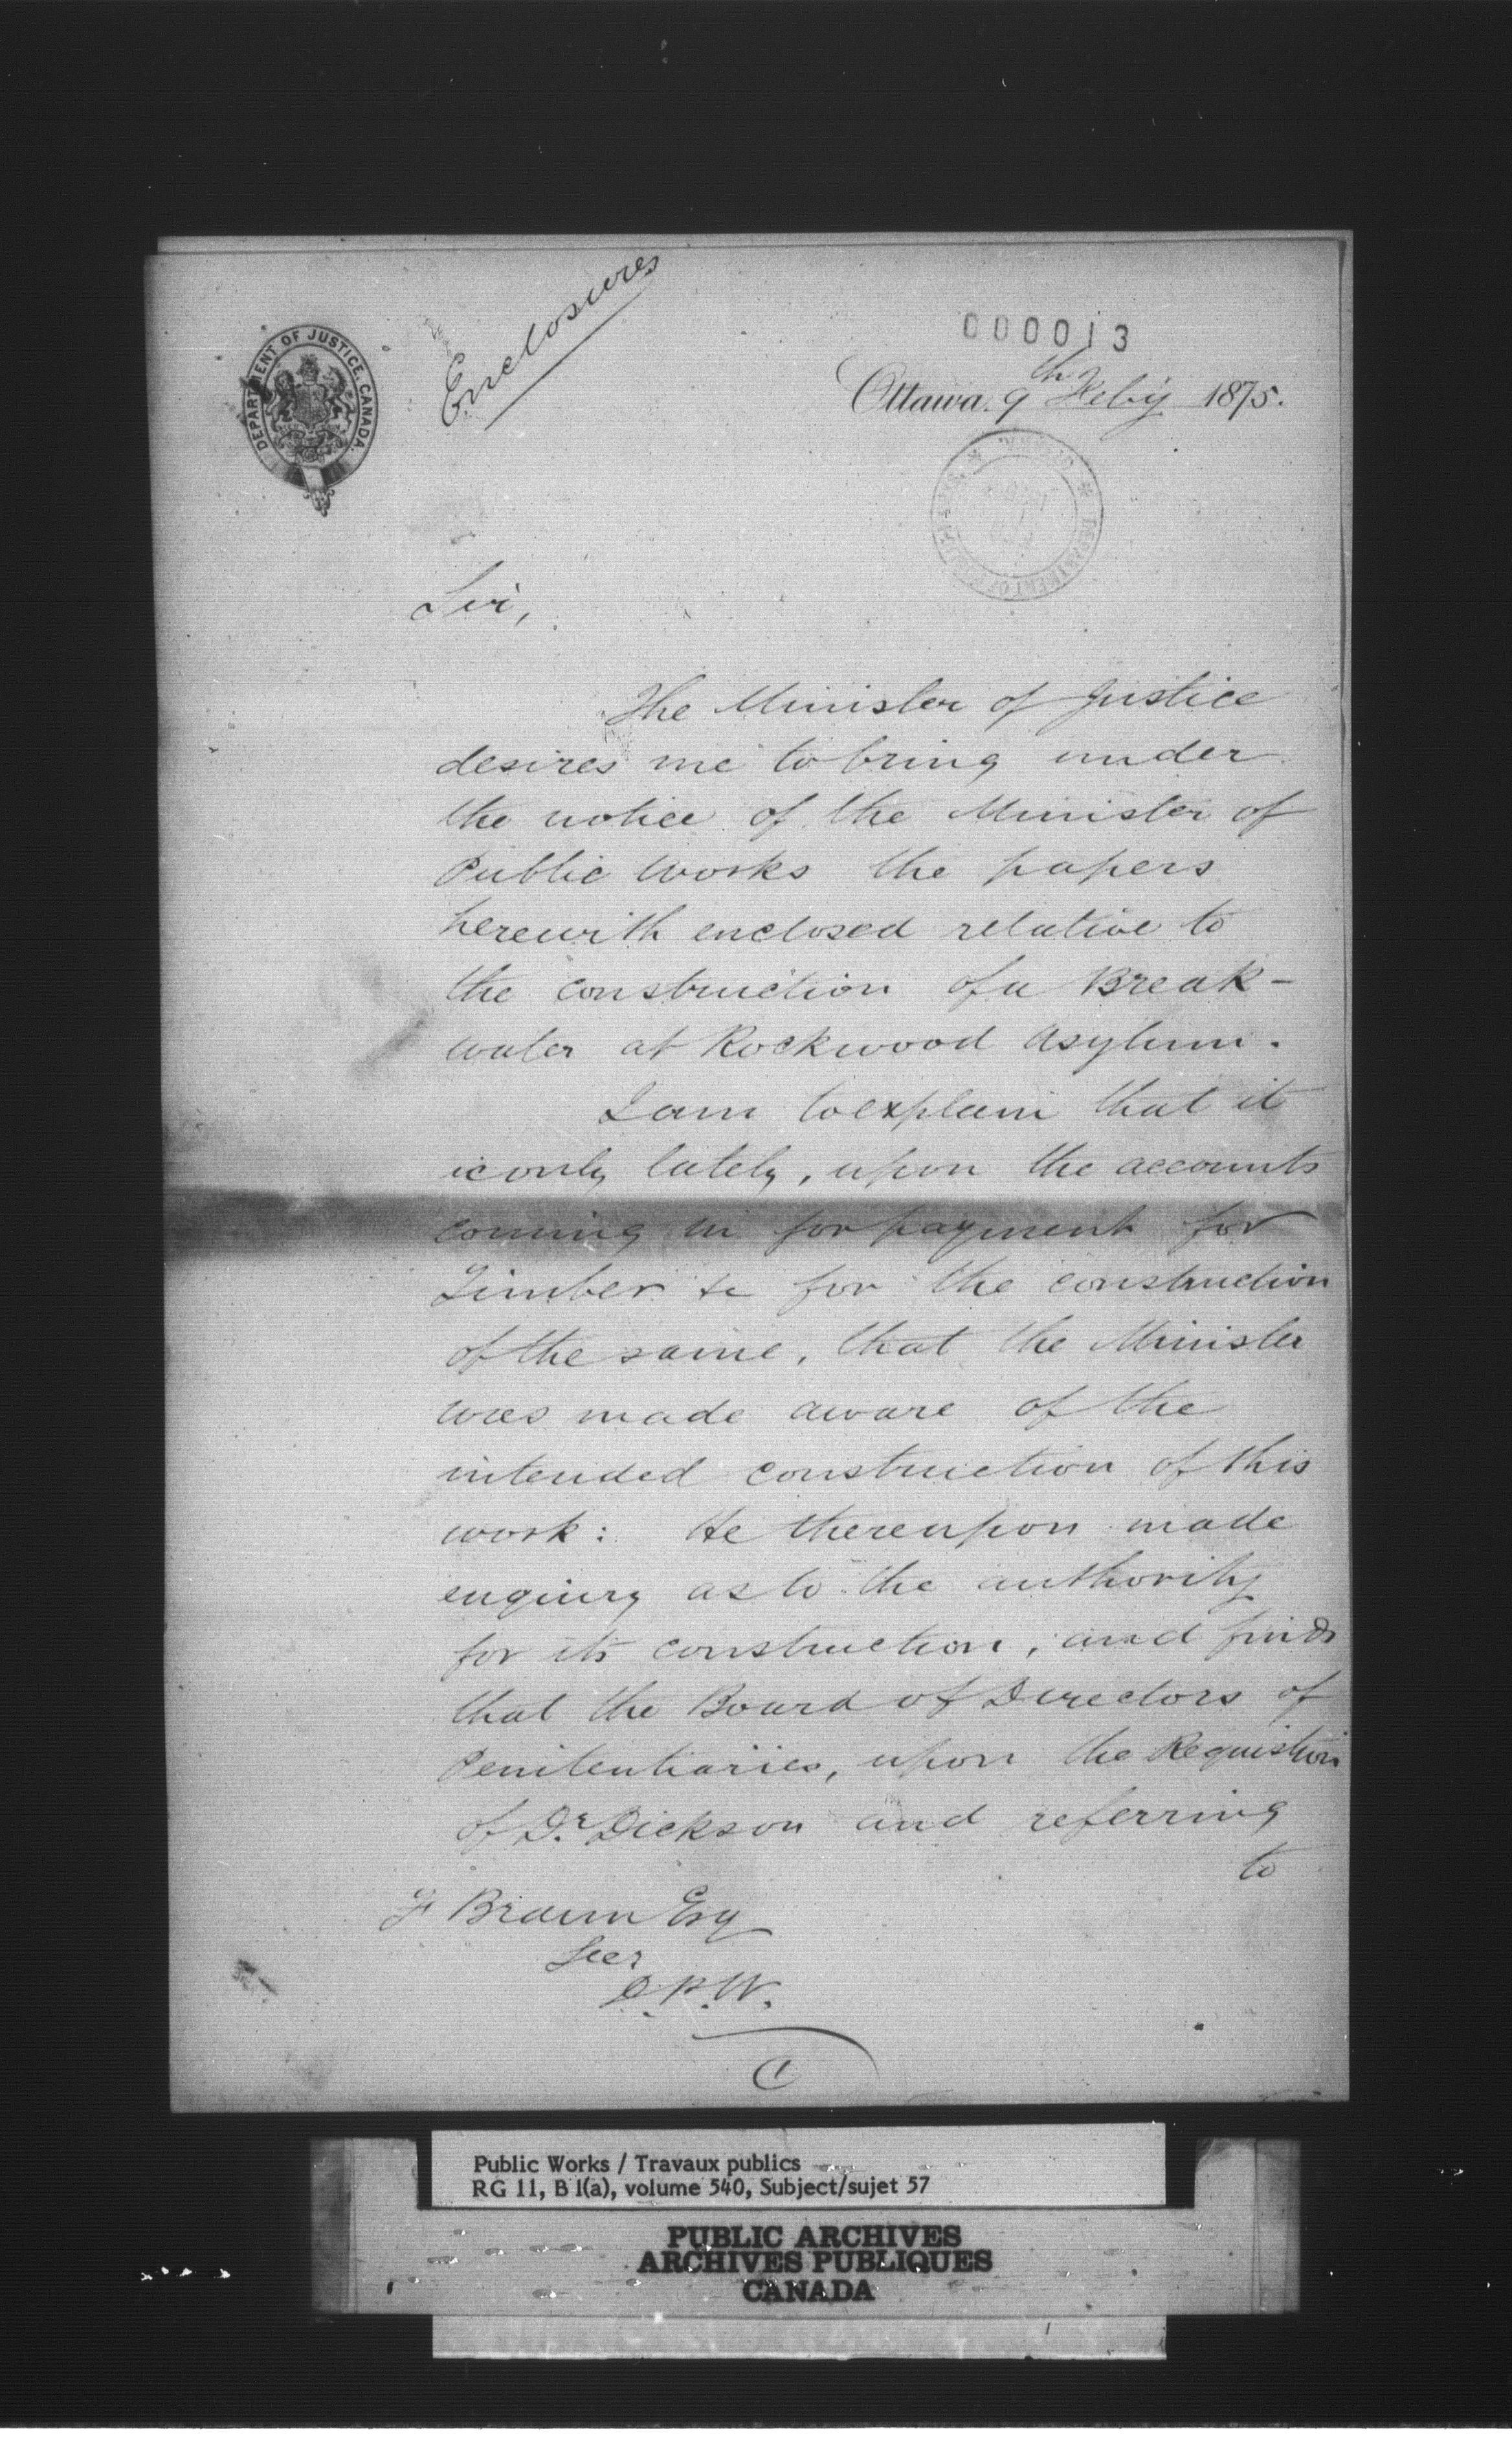 Enclosures
DEPARTMENT OF JUSTICE, CANADA.
000013
Ottawa. 9th Feby 1875.
DEPARTMENT OF PUBLIC
Sir,
The Minister of Justice
desires me to bring under
the notice of the Minister of
Public Works the papers
herewith enclosed relative to
the construction of a Break-
water at Rockwood Asylum.
I am to explain that it
is only lately, upon the accounts
coming in for payment for
Timber &c for the construction
of the same, that the Minister
was made aware of the
intended construction of this
work: He thereupon made
enquiry as to the authority
for its construction, and finds
that the Board of Directors of
Penitentiaries, upon the Requisition
of Dr. Dickson and referring
to
F Braun Esq
Secy
D.P.W.
Public Works / Travaux publics
RG 11, B 1(a), volume 540, Subject/sujet 57
PUBLIC ARCHIVES
ARCHIVES PUBLIQUES
CANADA